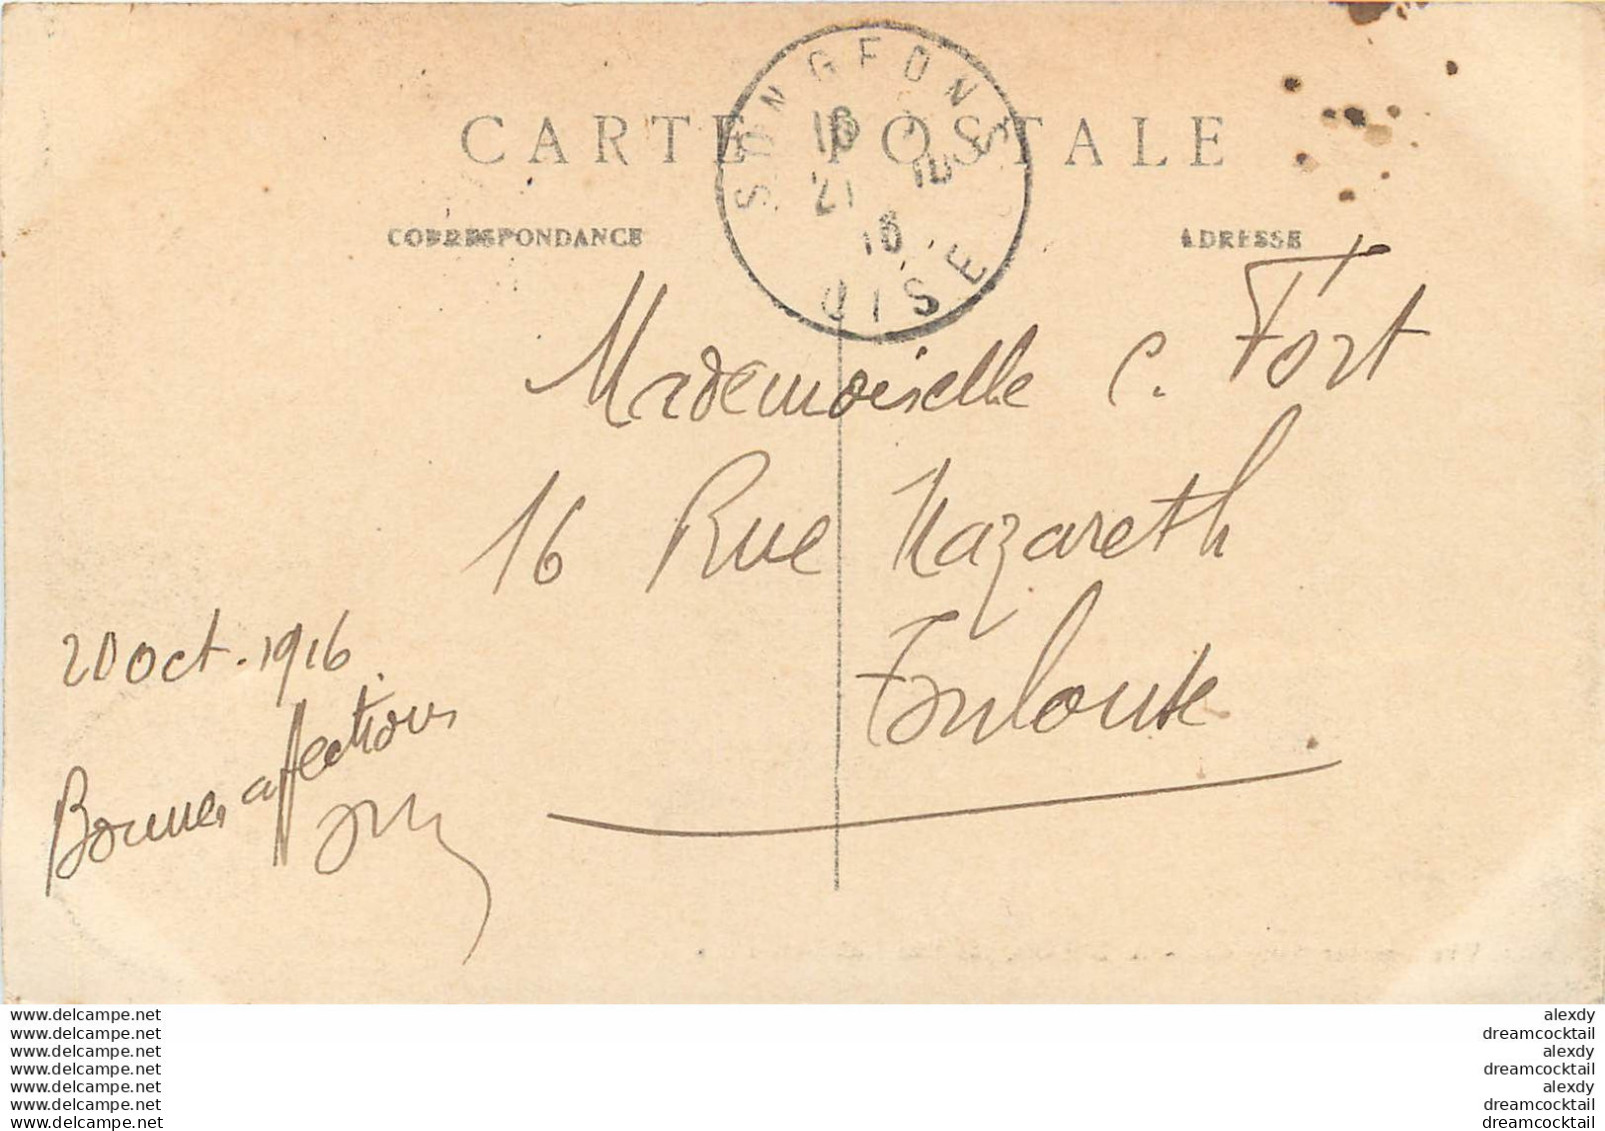 CARTE POSTALE
SONGEONS
OISE
CORRESPONDANCE
ADRESSE
Mademoiselle C. Fort
16 Rue Nazareth
Toulouse
20 oct. 1916.
Bonnes affections
www.delcampe.net
www.delcampe.net
www.delcampe.net
www.delcampe.net
www.delcampe.net
www.delcampe.net
www.delcampe.net
alexdy
dreamcocktail
alexdy
dreamcocktail
alexdy
dreamcocktail
dreamcocktail